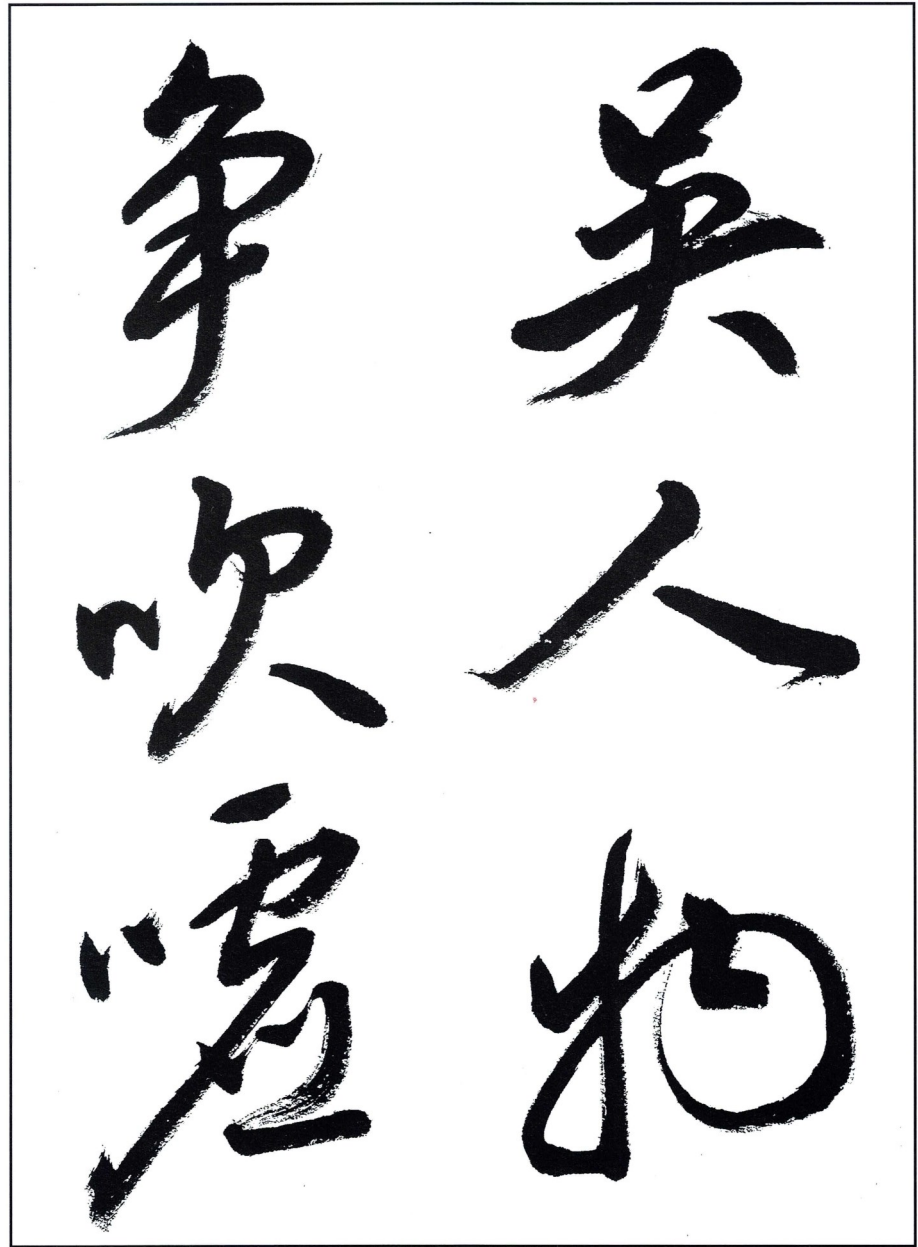 吴人物
争吹嘘